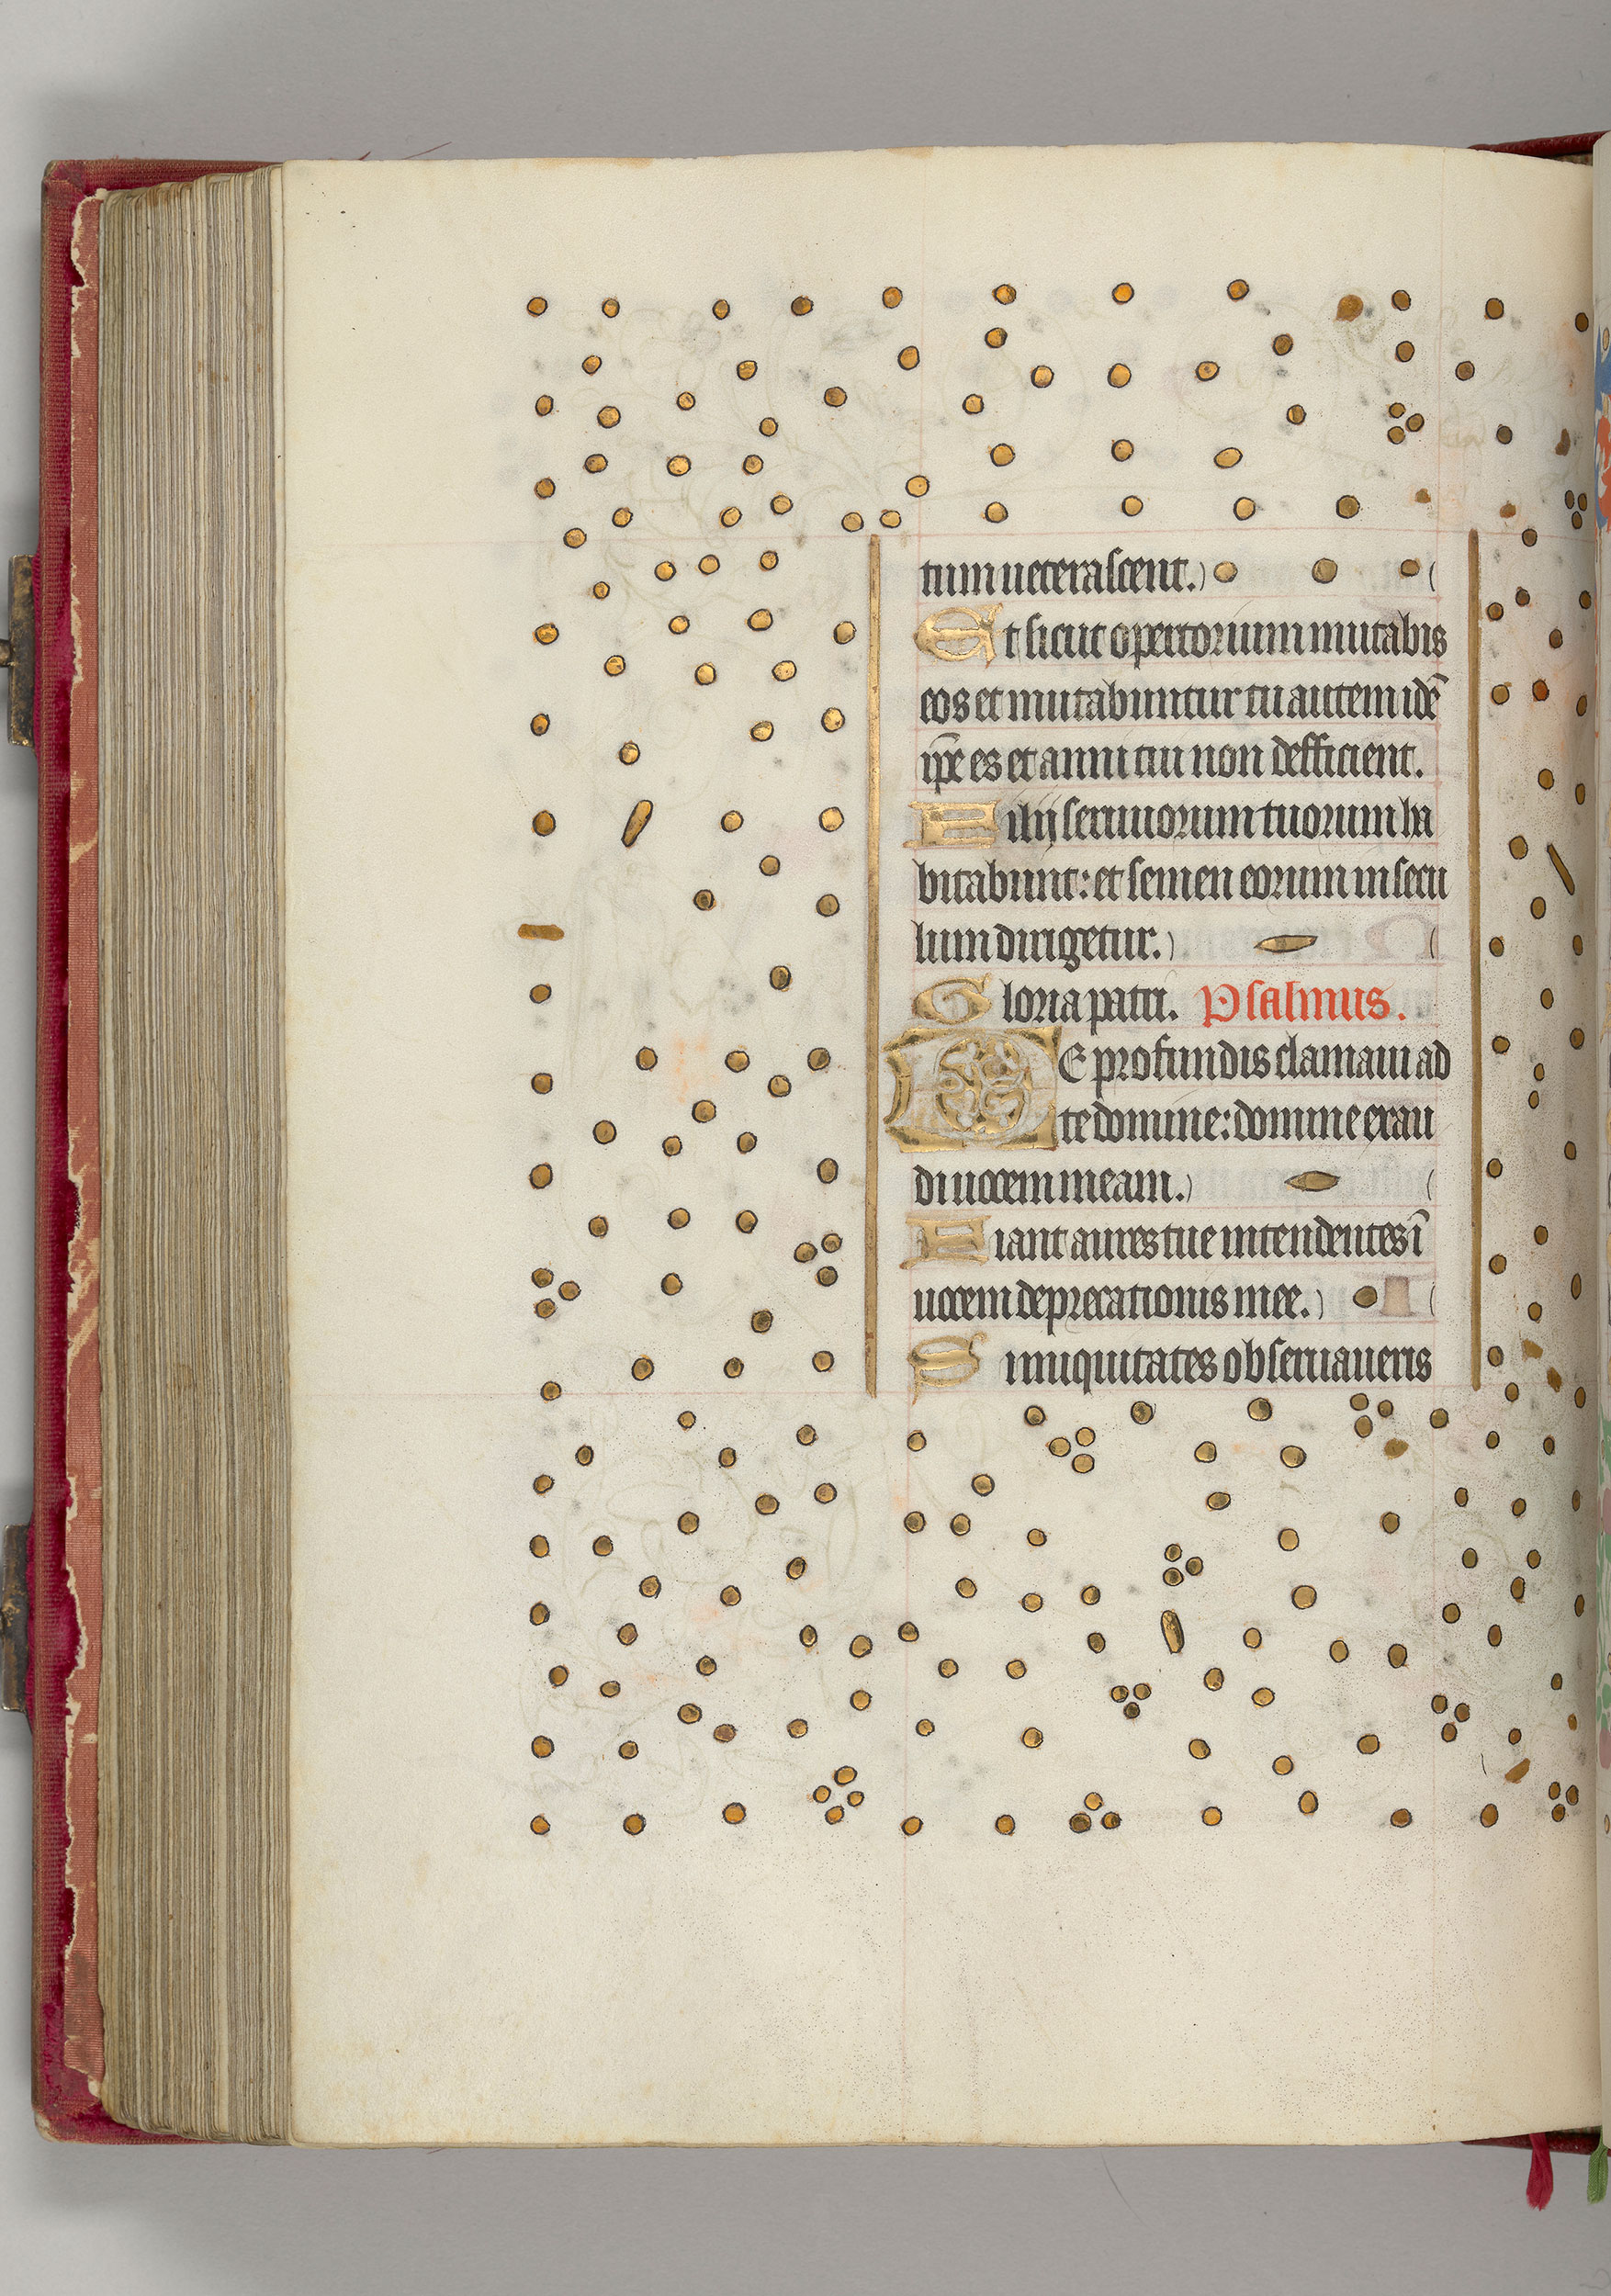 tum ueterascent.
Et sicut opertorium mutabis
eos et mutabuntur tu autem idē
ip̄e es et anni tui non defficient.
Filij seruuorum tuorum ha
bitabunt: et semen eorum in secu
lum dirigetur.
Gloria patri. Psalmus.
DE profundis clamaui ad
te domine: domine exau
di uocem meam.
Fiant aures tue intendentes ī
uocem deprecationis mee.
S iniquitates obseruaueris